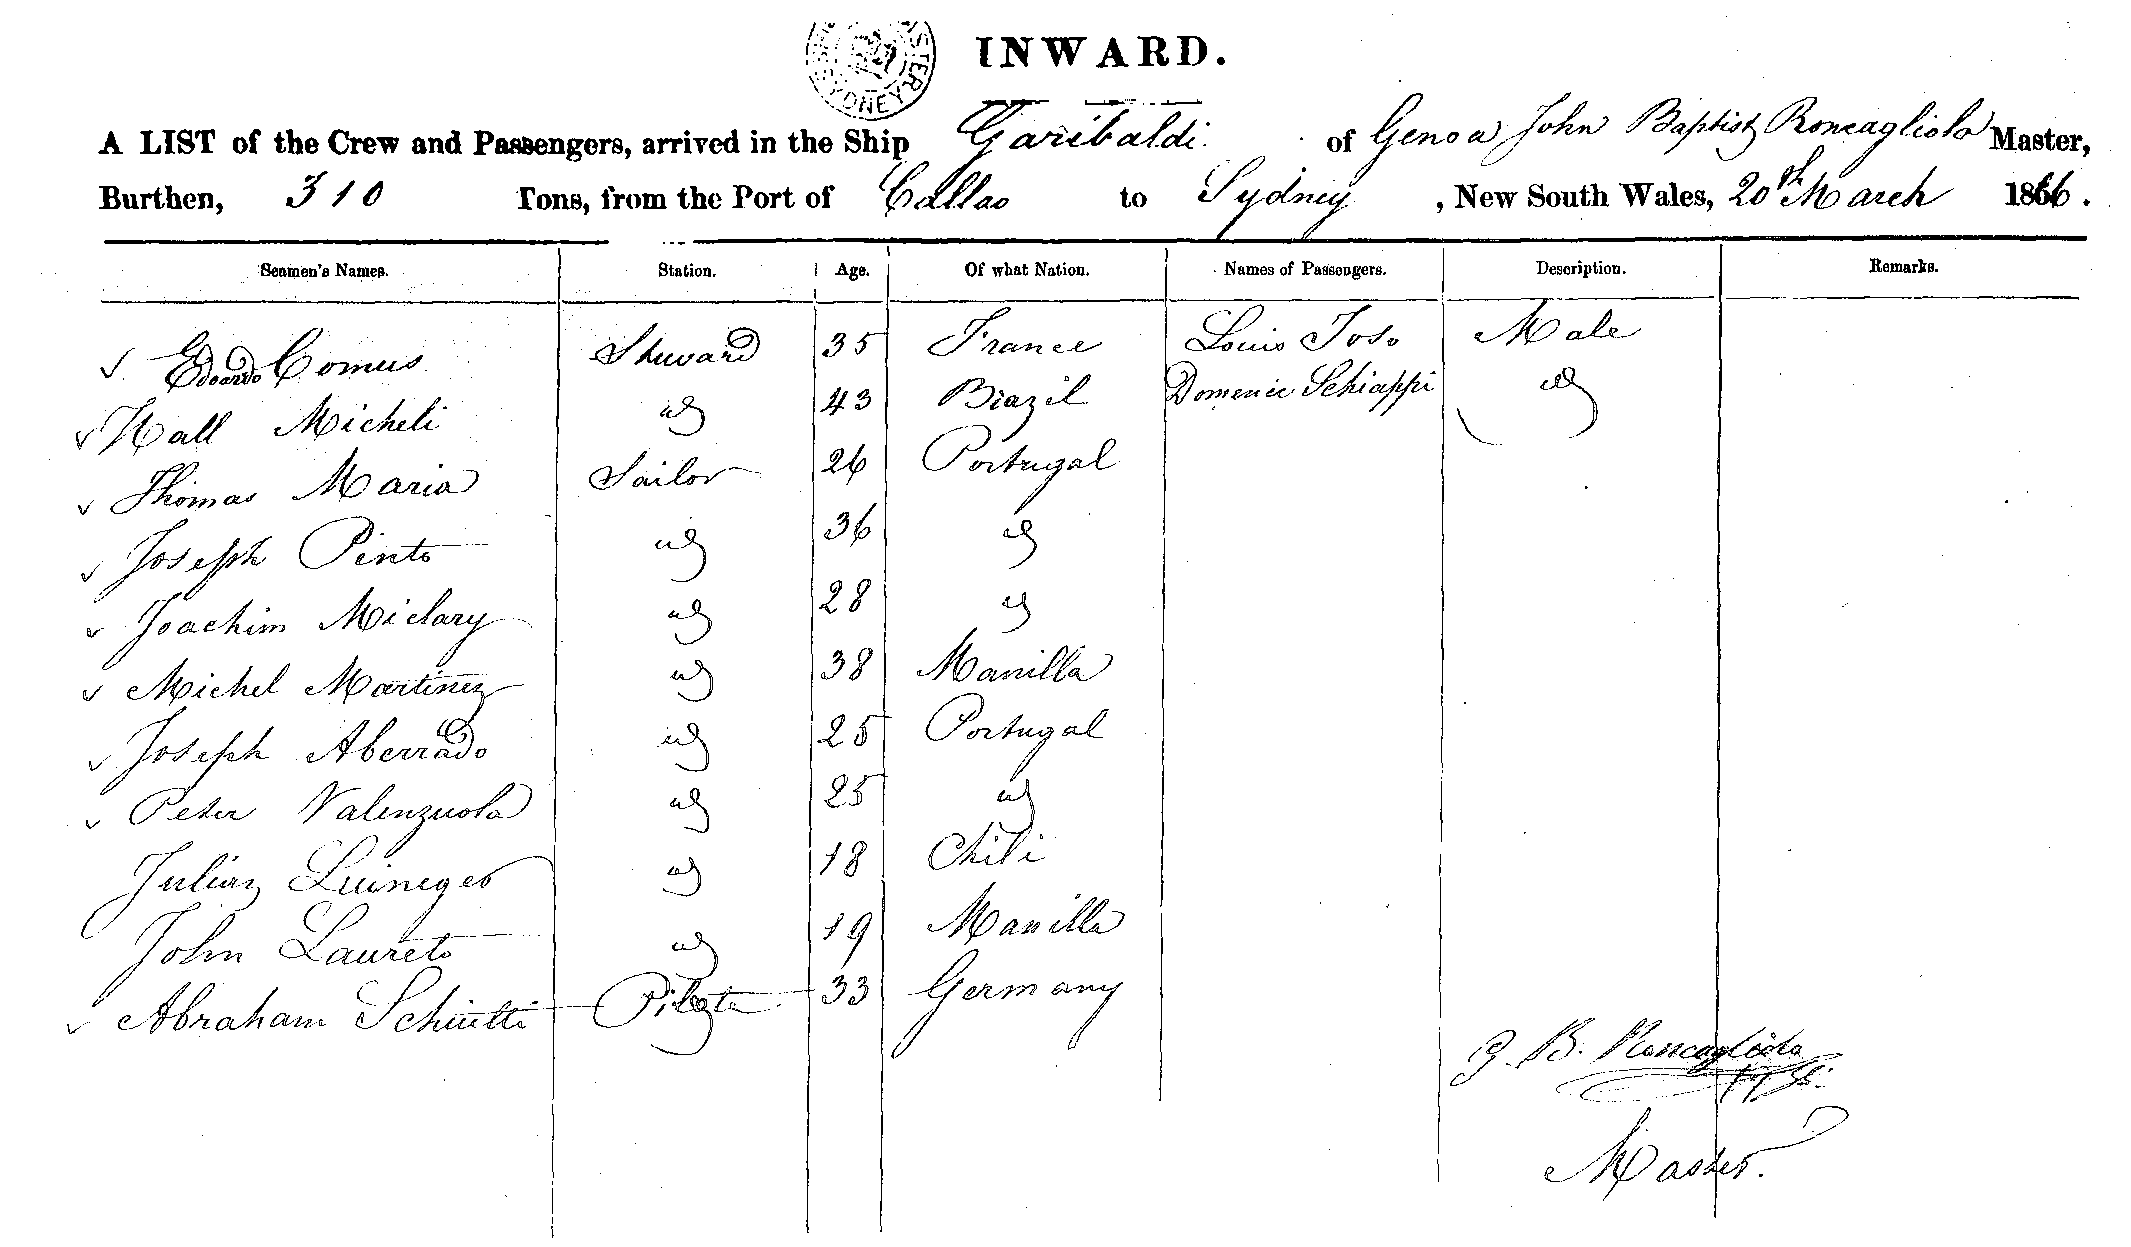 SYDNEY
INWARD.
A LIST of the Crew and Passengers, arrived in the Ship Garibaldi. of Genoa John Baptist Roncagliolo Master,
Burthen, 310 Tons, from the Port of Callao to Sydney, New South Wales, 20th March 1866.
Seamen's Names. Station. Age. Of what Nation. Names of Passengers. Description. Remarks.
Edoardo Comus Steward 35 France Louis Toso Male
Hall Micheli do 43 Brazil Domenic Schiappi do
Thomas Maria Sailor 26 Portugal
Joseph Pinto do 36 do
Joachim Miclary do 28 do
Michel Martinez do 38 Manilla
Joseph Aberrado do 25 Portugal
Peter Valenzuola do 25 do
Julian Luineger do 18 Chili
John Laureto do 19 Manilla
Abraham Schiutti 33 Germany
G. B. Roncagliolo
Master.